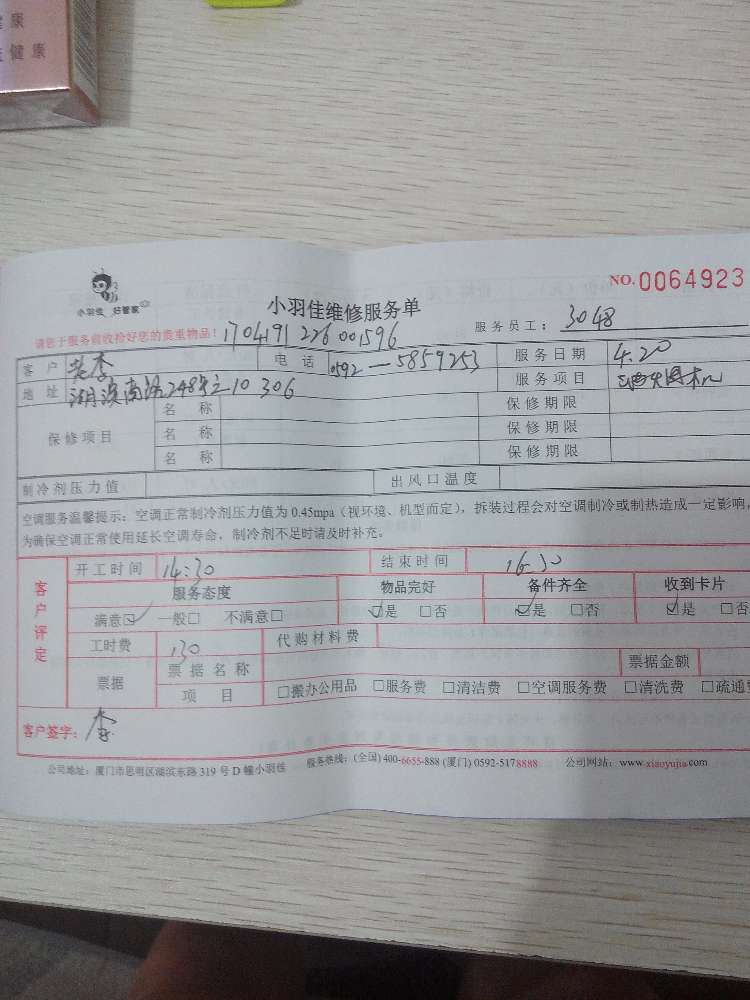 健康
健康
NO.0064923
小羽佳 好管家
小羽佳维修服务单
请您于服务前收拾好您的贵重物品! 1704191226001596
服务员工: 3048
客户 电话 0592—5859253 服务日期 4.20
地址 湖滨南路248号之10 306 服务项目
保修项目 名称 保修期限
名称 保修期限
名称 保修期限
制冷剂压力值 出风口温度
空调服务温馨提示:空调正常制冷剂压力值为 0.45mpa(视环境、机型而定),拆装过程会对空调制冷或制热造成一定影响,
为确保空调正常使用延长空调寿命,制冷剂不足时请及时补充。
客户评定 开工时间 14:30 结束时间 16:30
服务态度 物品完好 备件齐全 收到卡片
满意☑ 一般□ 不满意□ ☑是 □否 ☑是 □否 ☑是 □否
工时费 130 代购材料费
票据 票据名称 票据金额
项目 □搬办公用品 □服务费 □清洁费 □空调服务费 □清洗费 □疏通
客户签字: 李
公司地址:厦门市思明区湖滨东路 319 号 D 幢小羽佳 服务热线:(全国) 400-6655-888 (厦门) 0592-5178888 公司网站:www.xiaoyujia.com